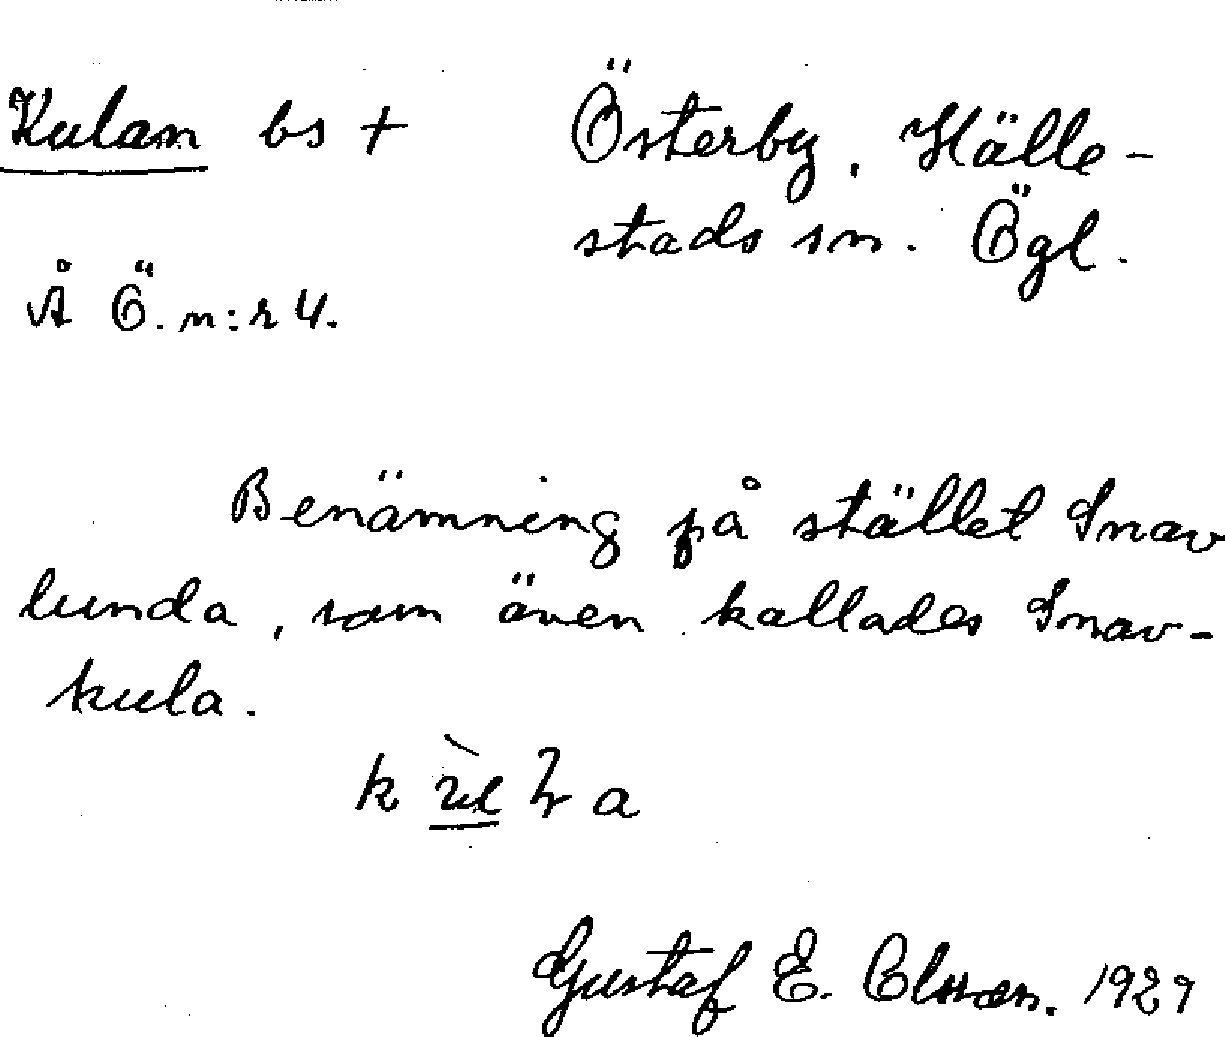 Kulan bs + Österby, Hälle-
stads sn. Ögl.
Å Ö. n:r 4.
Benämning på stället Snav
lunda, som även kallades Snav-
kula.
Gustaf E. Olsson. 1929